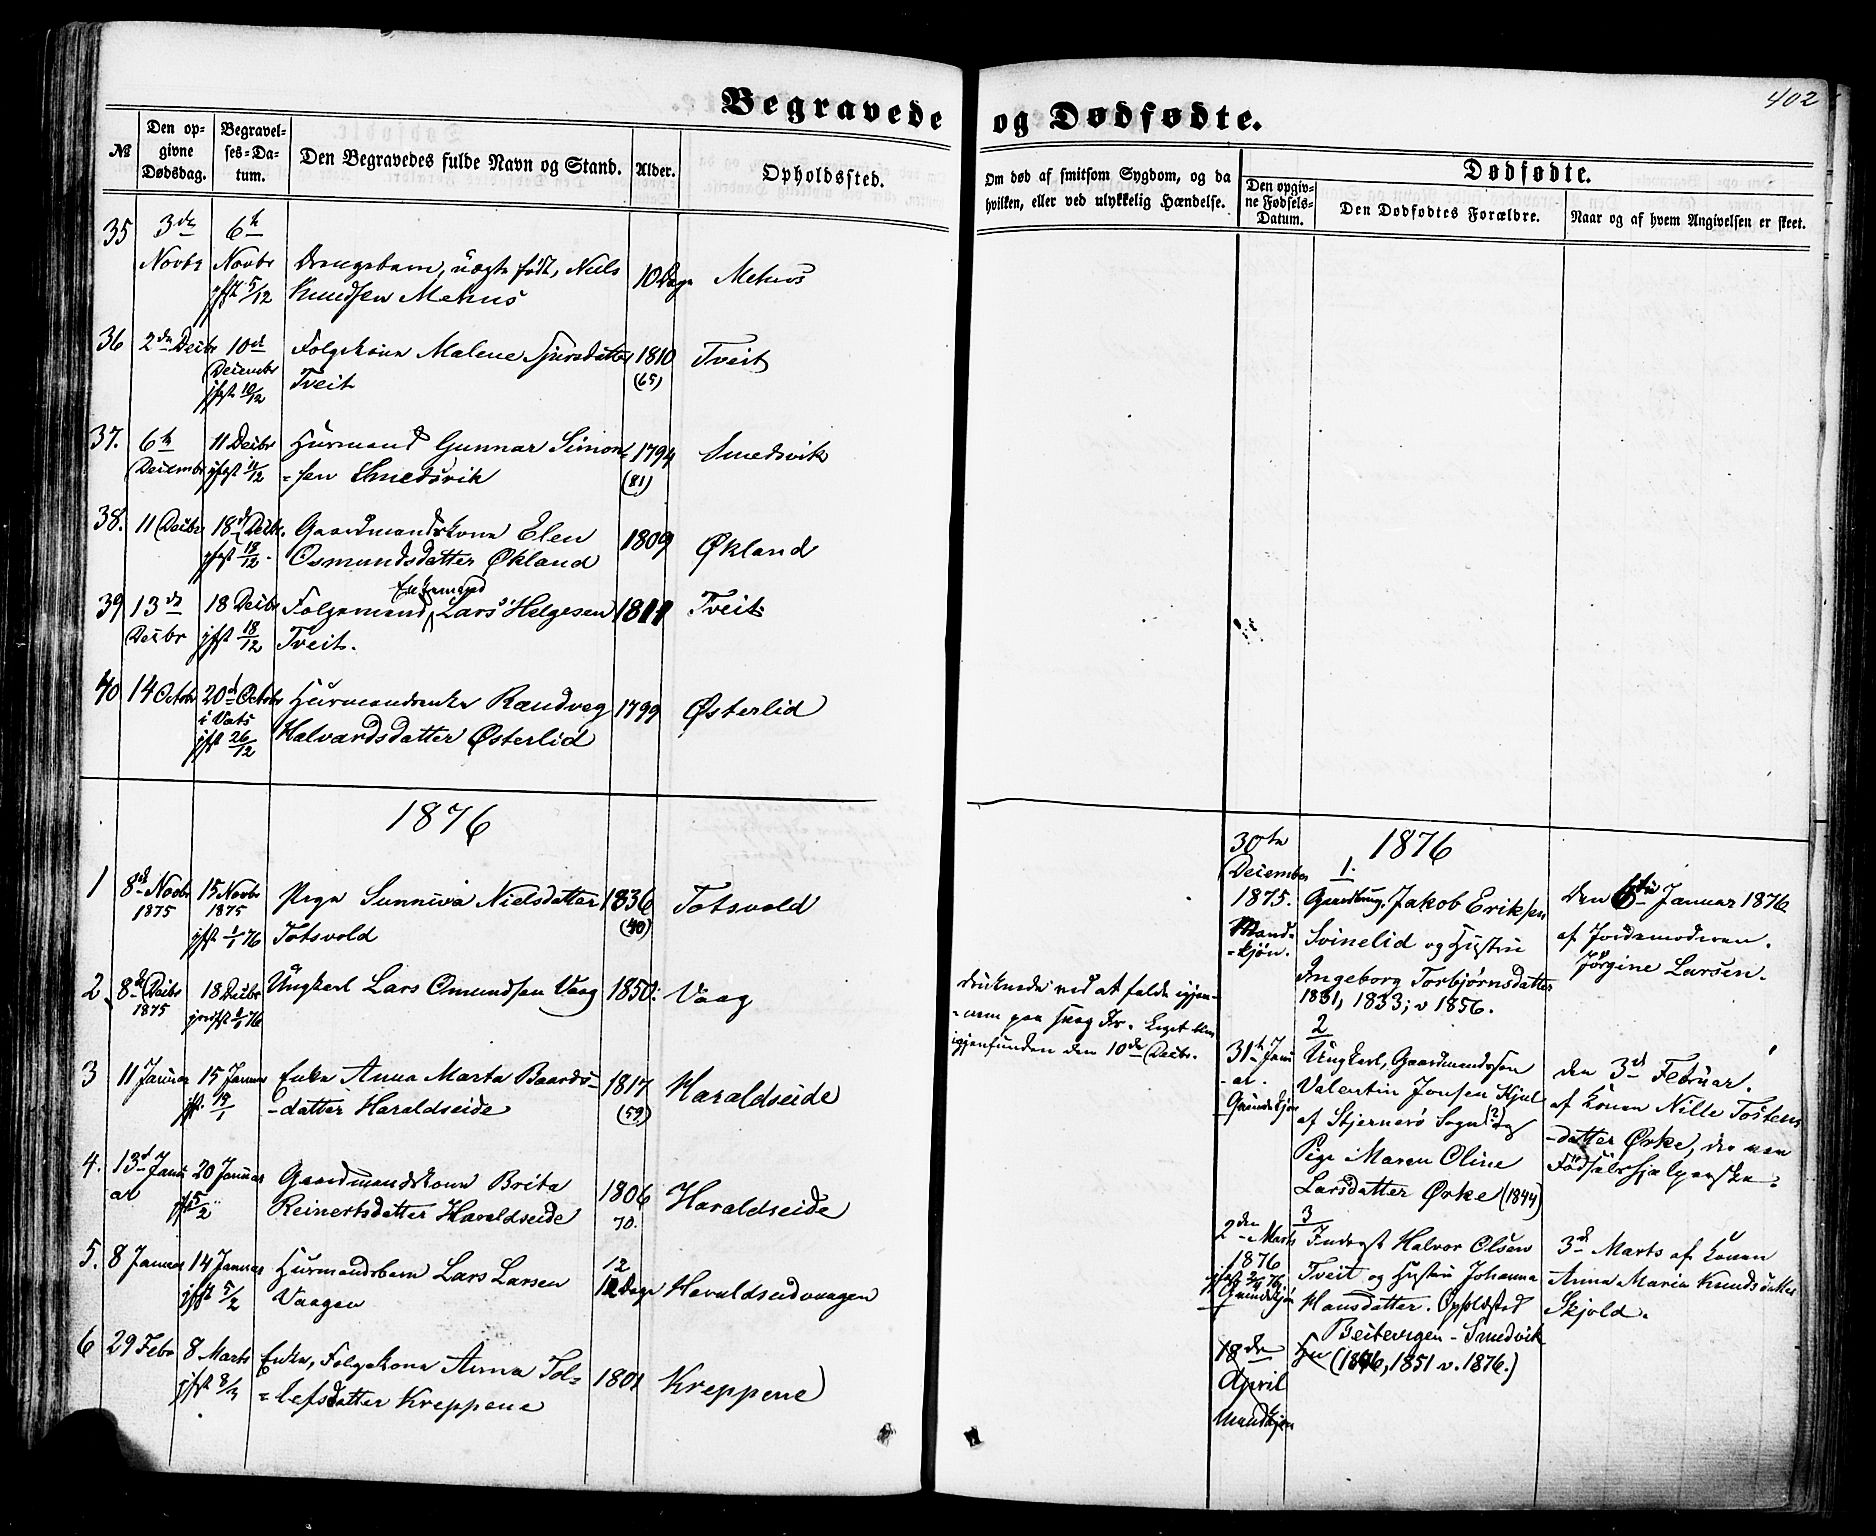 402
Begravede og Dødfødte.
№
Den op-
givne
Dødsdag.
Begravel-
ses-Da-
tum.
Den Begravedes fulde Navn og Stand.
Alder.
Opholdssted.
Om død af smitsom Sygdom, og da
hvilken, eller ved ulykkelig Hændelse.
Dødfødte.
Den opgiv-
ne Fødsels-
Datum.
Den Dødfødtes Forældre.
Naar og af hvem Angivelsen er skeet.
35
3de
Novbr
6te
Novbr
jfst 5/12
Drengebarn, uægte født, Niels
Knudsen Mehus
10 Dage
Mehus
36
2den Decbr
10de
Decembr
jfst 10/12
Folgekone Malene Sjursdatter
Tveit
1810
(65)
Tveit
37.
6te
Decembr
11 Decbr
jfst 11/12
Huusmand Gunnar Simon-
-sen Smedsvik
1794
(81)
Smedsvik
38.
11 Decbr
18de Decbr.
jfst 18/12.
Gaardmandskone Elen
Osmundsdatter Økland
1809
Økland
39
13de
Decbr
18 Decbr
jfst 18/12
Enkemand
Folgemand, Lars Helgesen
Tveit.
1811
Tveit
40
14 Octobr
20de Octobr
i Vats
jfst 26/12
Huusmandsenke Randveg
Halvardsdatter Østerlid
1799
Østerlid
1876
1
8de Novbr
1875
15 Novbr
1875
jfst 1/1 76
Pige Sunniva Nielsdatter
Totsvold
1836
(40)
Totsvold
2
8de Decbr
1875
18 Decbr
jordfst 1/1 76
Ungkarl Lars Omundsen Vaag
1850.
Vaag
druknede ved at falde igjen-
-nem paa svag Is. Liget blev
igjenfunden den 10de Decbr.
3
11 Januar
15 Januar
jfst 15/1
Enke Anna Marta Baards-
-datter Haraldseide
1817
(59)
Haraldseide
4.
13de Janu
ar
20 Januar
jfst 5/2
Gaardmandskone Brita
Reinertsdatter Haraldseide
1806
70.
Haraldseide
5.
8 Januar
14 Januar
jfst 5/2
Huusmandsbarn Lars Larsen
Vaagen
12
12 Dage
Haraldseidvaagen
6
29 Febr
8 Marts
jfst 8/3
Enke, Folgekone Anna Tol-
-lefsdatter Kreppene
1801
Kreppene
1876
30te
December
1875.
Mand-
-kjøn.
1.
Gaardbrug. Jakob Eriksen
Svinelid og Hustru
Ingeborg Torbjørnsdatter
1831, 1833; v 1856.
Den 6te Januar 1876
af Jordemoderen
Jørgine Larsen.
31te Janu
-ar.
Qvindekjøn
2
Ungkarl, Gaardmandssøn
Valentin Jonsen Kjul
af Stjernerø Sogn (?) og
Pige Maren Oline
Larsdatter Ørke (1844)
den 3de Februar.
af Konen Nille Tostens
-datter Ørke, der var
Fødselshjælperske.
2den Marts
1876
jfst 2/4 76
Qvindekjøn
3
Inderst Halvor Olsen
Tveit og Hustru Johanna
Hansdatter. Opholdssted
Beitevigen - Smedvik
(1846, 1851 v. 1876.)
3de Marts af Konen
Anna Maria Knudsdatter
Skjold.
18de
April
Mandkjøn